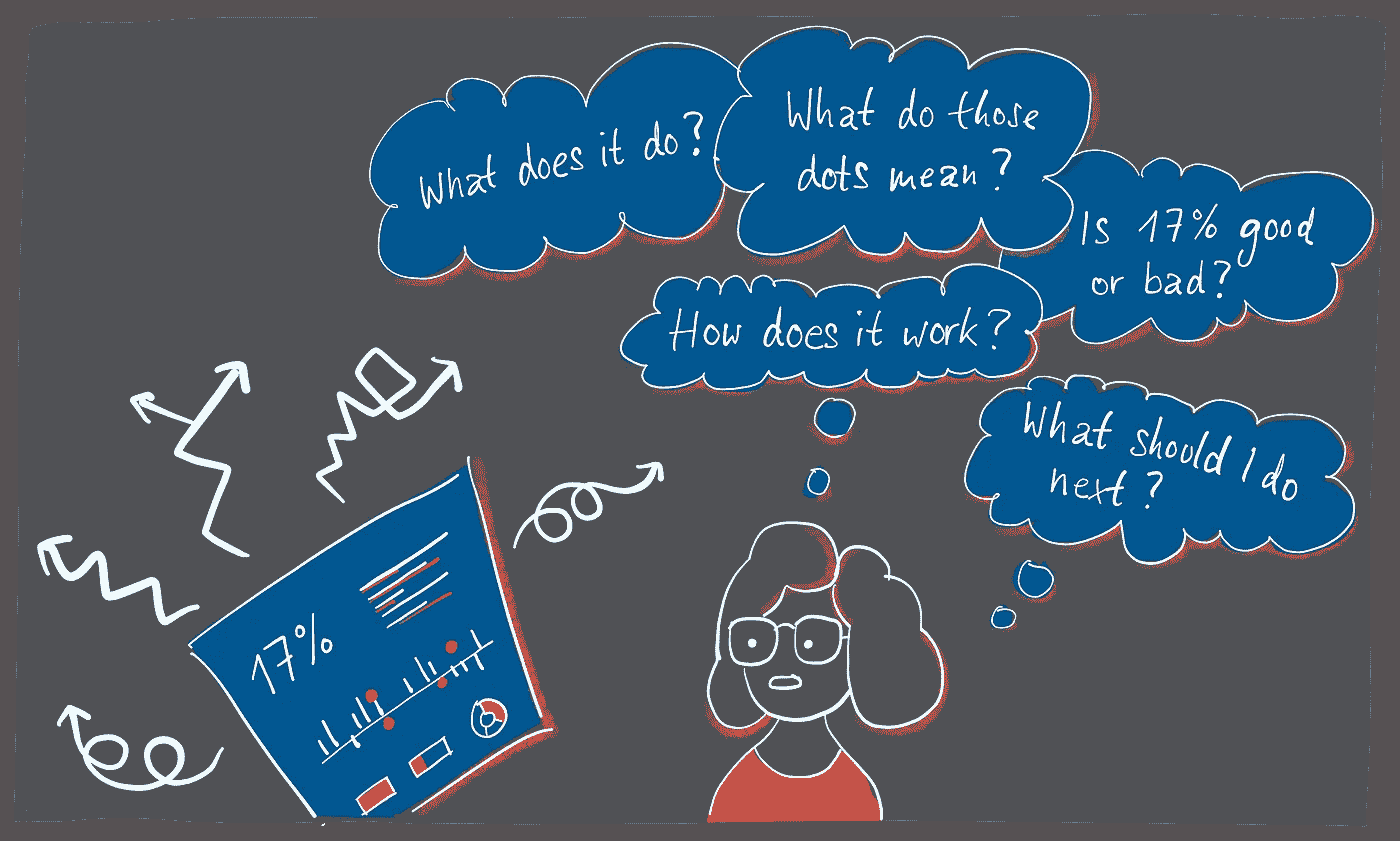 What does it do?
What do those
dots mean?
Is 17% good
or bad?
How does it work?
What should I do
next?
17%